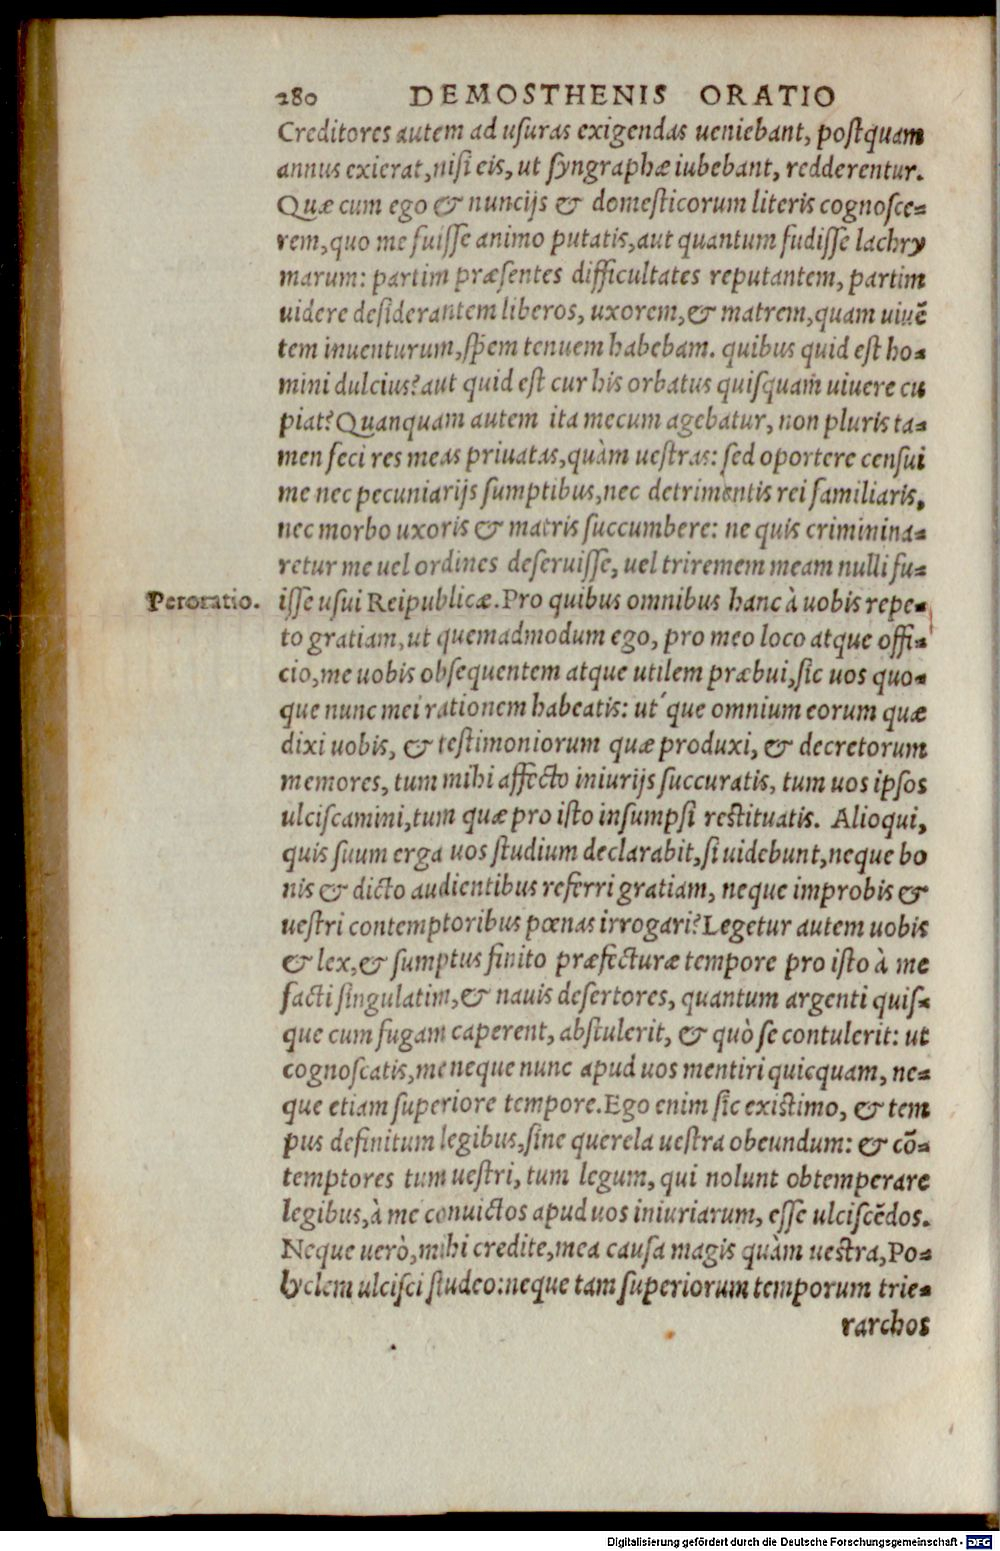 280 DEMOSTHENIS ORATIO
Creditores autem ad usuras exigendas ueniebant, postquam
annus exierat, nisi eis, ut syngraphæ iubebant, redderentur.
Quæ cum ego & nuncijs & domesticorum literis cognosce-
rem, quo me fuisse animo putatis, aut quantum fudisse lachry
marum: partim præsentes difficultates reputantem, partim
uidere desiderantem liberos, uxorem, & matrem, quam uiuẽ
tem inuenturum, spem tenuem habebam. quibus quid est ho-
mini dulcius? aut quid est cur his orbatus quisquam uiuere cu
piat? Quanquam autem ita mecum agebatur, non pluris ta-
men feci res meas priuatas, quàm uestras: sed oportere censui
me nec pecuniarijs sumptibus, nec detrimentis rei familiaris,
nec morbo uxoris & matris succumbere: ne quis criminina-
retur me uel ordines deseruisse, uel triremem meam nulli fu-
Peroratio. isse usui Reipublicæ. Pro quibus omnibus hanc à uobis repe-
to gratiam, ut quemadmodum ego, pro meo loco atque offi-
cio, me uobis obsequentem atque utilem præbui, sic uos quo-
que nunc mei rationem habeatis: ut´que omnium eorum quæ
dixi uobis, & testimoniorum quæ produxi, & decretorum
memores, tum mihi affecto iniurijs succuratis, tum uos ipsos
ulciscamini, tum quæ pro isto insumpsi restituatis. Alioqui,
quis suum erga uos studium declarabit, si uidebunt, neque bo
nis & dicto audientibus referri gratiam, neque improbis &
uestri contemptoribus pœnas irrogari? Legetur autem uobis
& lex, & sumptus finito præfecturæ tempore pro isto à me
facti singulatim, & nauis desertores, quantum argenti quis-
que cum fugam caperent, abstulerit, & quò se contulerit: ut
cognoscatis, me neque nunc apud uos mentiri quicquam, ne-
que etiam superiore tempore. Ego enim sic existimo, & tem
pus definitum legibus, sine querela uestra obeundum: & cõ-
temptores tum uestri, tum legum, qui nolunt obtemperare
legibus, à me conuictos apud uos iniuriarum, esse ulciscẽdos.
Neque uerò, mihi credite, mea causa magis quàm uestra, Po-
lyclem ulcisci studeo: neque tam superiorum temporum trie-
rarchos
Digitalisierung gefördert durch die Deutsche Forschungsgemeinschaft - DFG